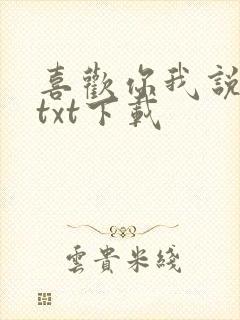 喜歡你我說
txt下載
雲貴米綫